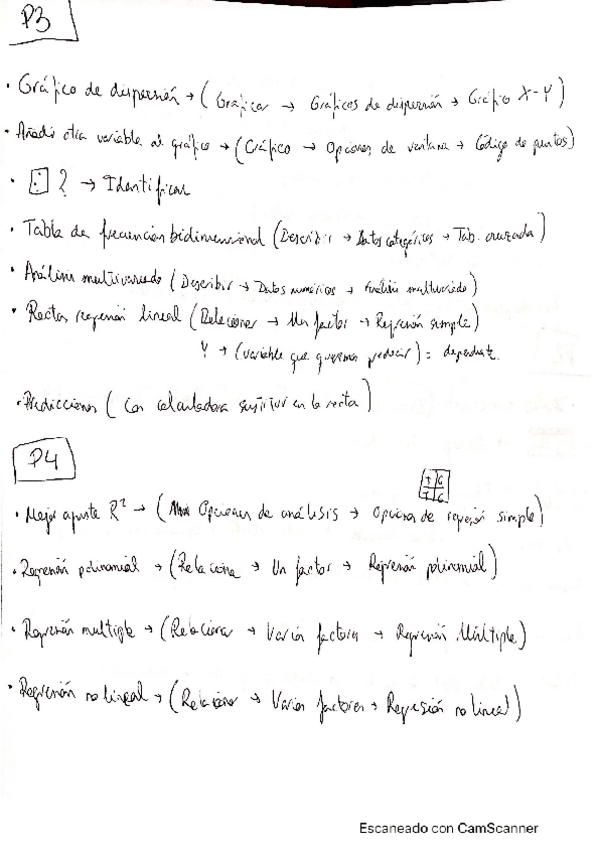 P3
• Gráfico de dispersión → (Graficar → Gráficos de dispersión → Gráfico X-Y)
• Añadir otra variable al gráfico → (Gráfico → Opciones de ventana → Código de puntos)
• ? → Identificar
• Tabla de frecuencias bidimensional (Describir → Datos categóricos → Tab. cruzada)
• Análisis multivariado (Describir → Datos numéricos → Análisis multivariado)
• Rectas regresión lineal (Relacionar → Un factor → Regresión simple)
Y → (variable que queremos predecir) = dependiente.
• Predicciones (Con calculadora sustituir en la recta)
P4
T G
T G
• Mejor ajuste R² → (Opciones de análisis → Opciones de regresión simple)
• Regresión polinomial → (Relacionar → Un factor → Regresión polinomial)
• Regresión multiple → (Relacionar → Varios factores → Regresión Múltiple)
• Regresión no lineal → (Relacionar → Varios factores → Regresión no lineal)
Escaneado con CamScanner